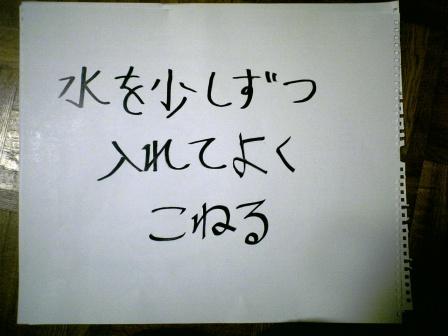 水を少しずつ
入れてよく
こねる